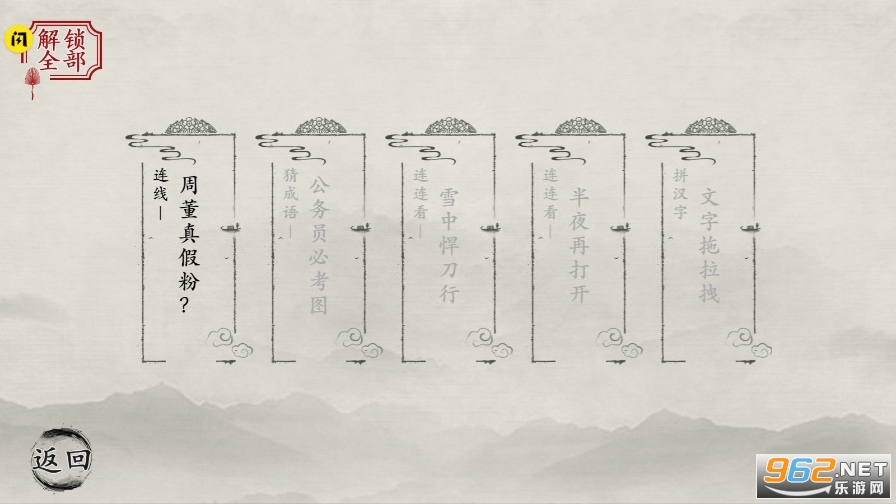 闪
解锁
全部
连线—
周董真假粉?
猜成语—
公务员必考图
连连看—
雪中悍刀行
连连看—
半夜再打开
拼汉字
文字拖拉拽
返回
962.NET
乐游网